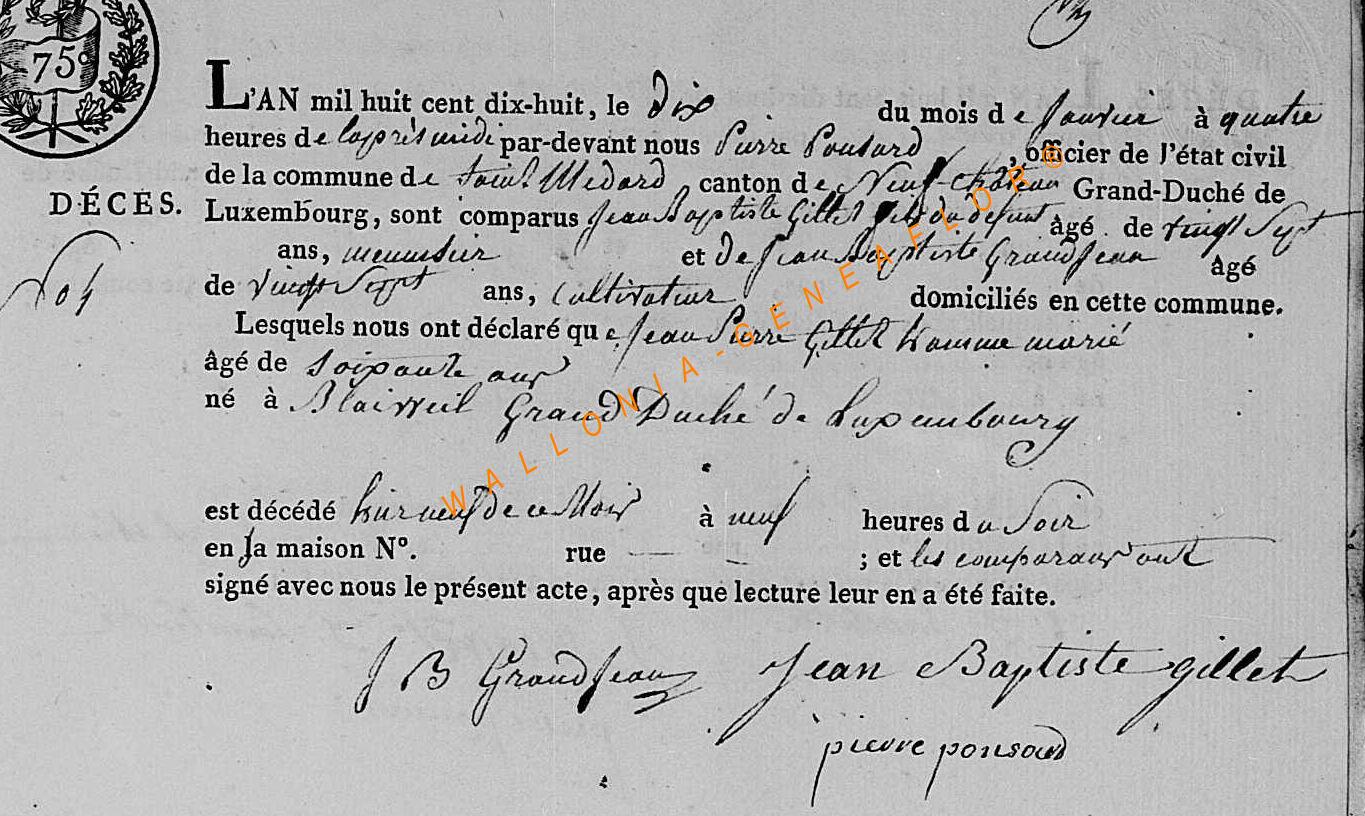 75c
L'AN mil huit cent dix-huit, le dix du mois de Janvier à quatre
heures de laprès midi par-devant nous Pierre Ponsard, officier de l'état civil
de la commune de Saint Medard, canton de Neuf-château Grand-Duché de
DÉCÈS.
Luxembourg, sont comparus Jean Baptiste Gillet fils du defunt âgé de vingt Sept
ans, menusier et de Jean Baptiste GrandJean âgé
de vingt Sept ans, Cultivateur domiciliés en cette commune.
Lesquels nous ont déclaré que Jean Pierre Gillet homme marié
âgé de Soixante ans
né à Grand Duché de Luxembourg
est décédé hier neuf de ce Mois à neuf heures du Soir
en la maison N°. rue ; et les comparans ont
signé avec nous le présent acte, après que lecture leur en a été faite.
J B GrandJean Jean Baptiste gillet
pierre ponsard
WALLONIA-GENEAFLOR©